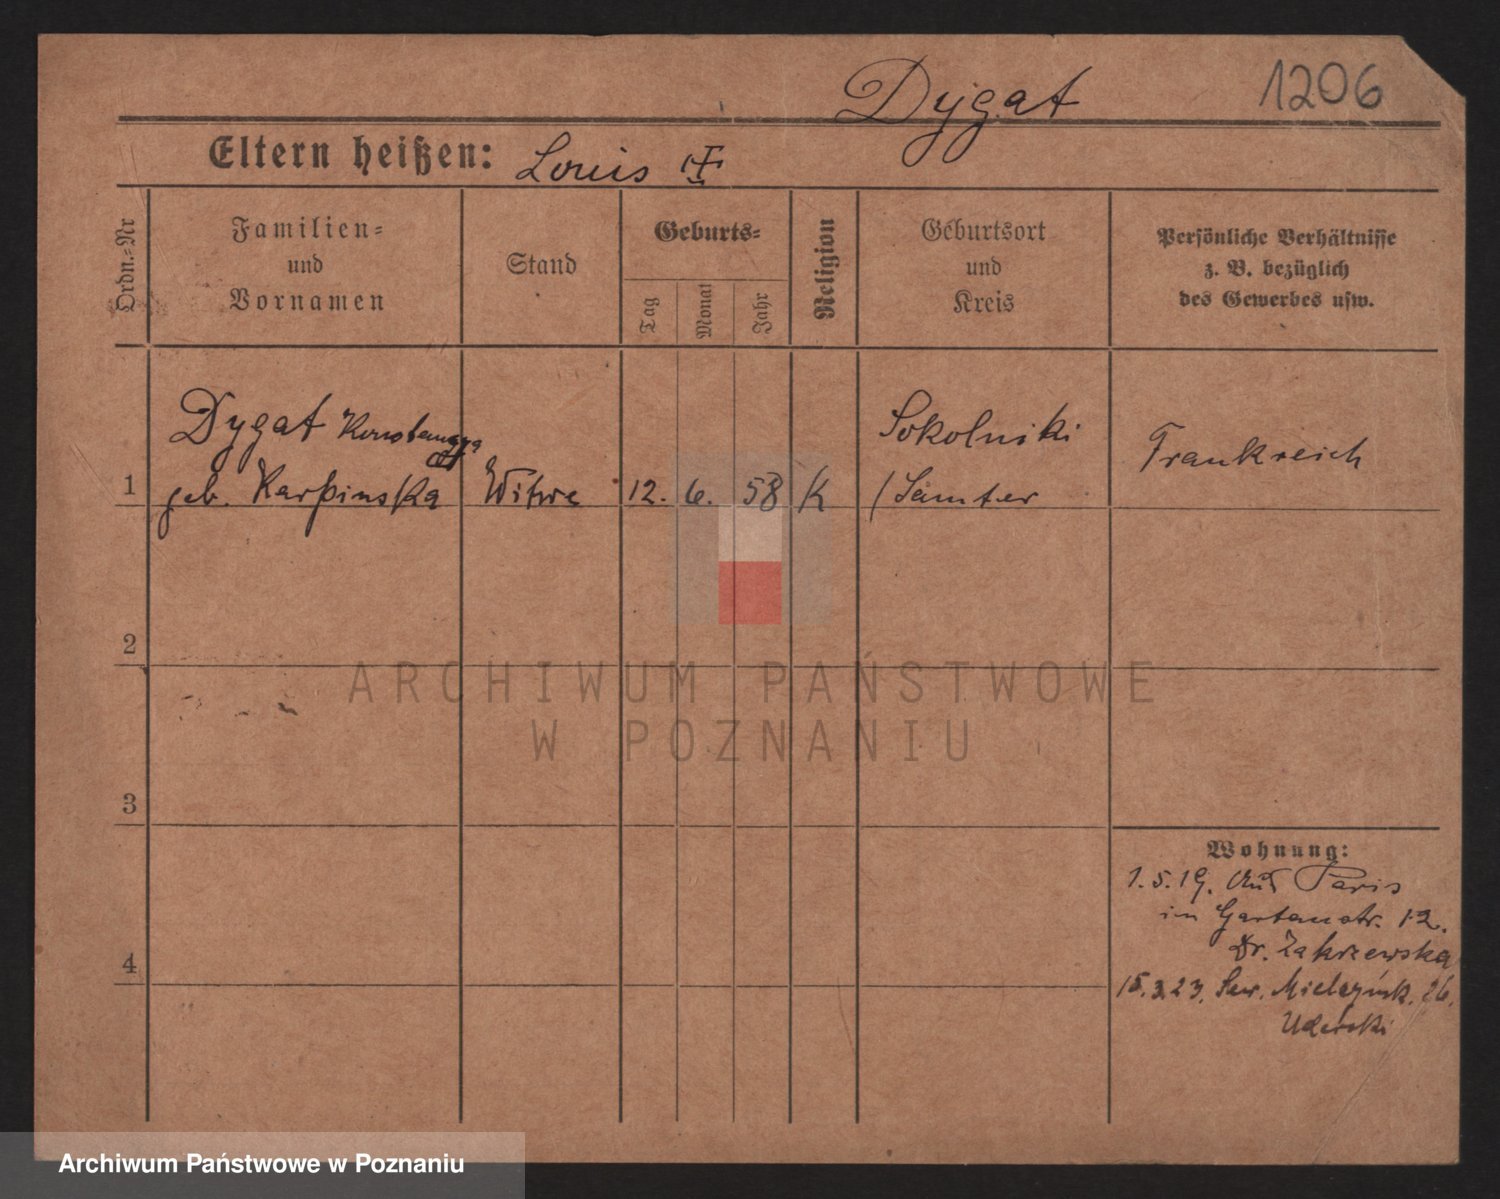 Dygat 1206
Eltern heißen: Louis
Ordn.-Nr
Familien-
und
Vornamen
Stand
Geburts-
Tag
Monat
Jahr
Religion
Geburtsort
und
Kreis
Persönliche Verhältnisse
z. B. bezüglich
des Gewerbes usw.
Dygat Konstancya
1 geb. Karpinska Witwe 12. 6. 58 K
Sokolniki
(Samter
Frankreich
2
3
4
Wohnung:
1.5.19. Aus Paris
in Gartenstr. 12.
Dr. Zakrzewska
15.3.23. Sew. Mielzynsk. 26.
Uderski
ARCHIWUM PAŃSTWOWE
W POZNANIU
Archiwum Państwowe w Poznaniu